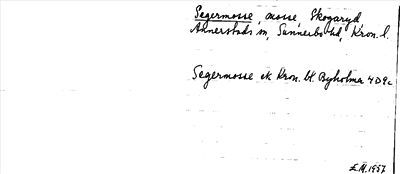 Segermosse, mosse, Skogaryd
Annerstads sn, Sunnerbo hd, Kron. l.
Segermosse ek Kron. bl. Byholma 4D9c
E.H. 1957